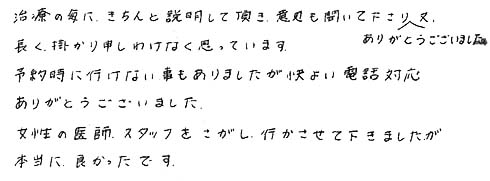 治療の毎に、きちんと説明して頂き、意見も聞いて下さり、又、
ありがとうございました
長く、掛かり申しわけなく思っています。
予約時に行けない事もありましたが快よい電話対応
ありがとうございました。
女性の医師、スタッフをさがし、行かさせて下きましたが
本当に、良かったです。